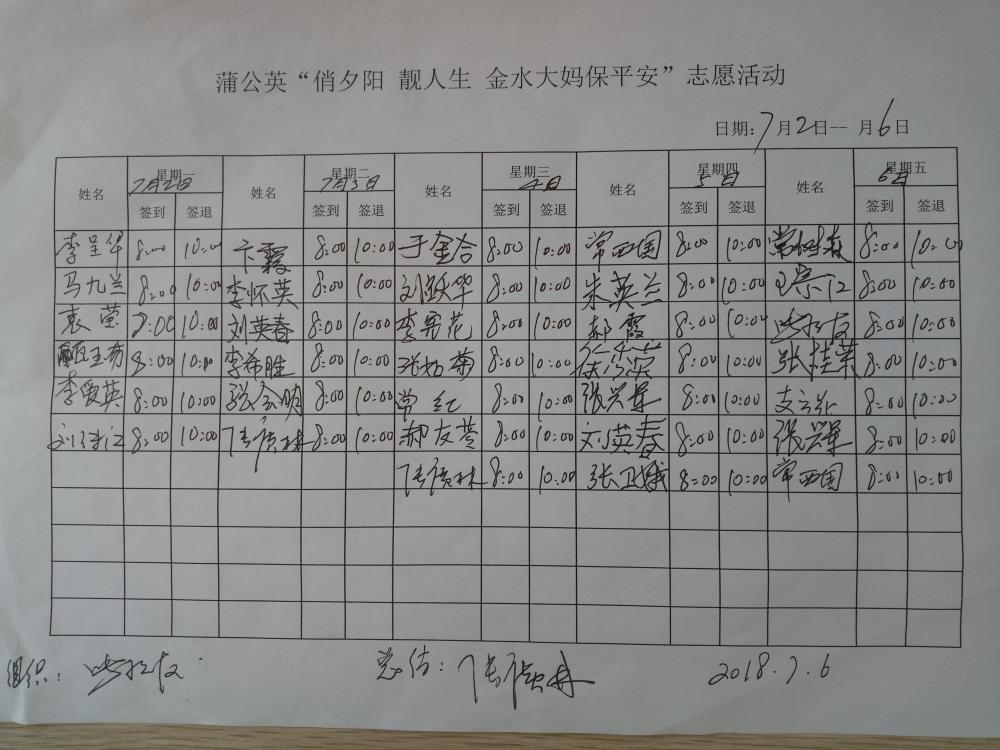 蒲公英“俏夕阳 靓人生 金水大妈保平安”志愿活动
日期：7月2日-- 月6日
姓名 星期一 姓名 星期二 姓名 星期三 姓名 星期四 姓名 星期五
7月2日 7月3日 4日 5日 6日
签到 签退 签到 签退 签到 签退 签到 签退 签到 签退
李呈华 8:00 10:00 卞霞 8:00 10:00 于金合 8:00 10:00 常西国 8:00 10:00 8:00 10:00
马九兰 8:00 10:00 李怀英 8:00 10:00 刘跃华 8:00 10:00 朱英兰 8:00 10:00 8:00 10:00
袁莹 8:00 10:00 刘英春 8:00 10:00 李希花 8:00 10:00 郝霞 8:00 10:00 8:00 10:00
8:00 10:00 李希胜 8:00 10:00 张拓菊 8:00 10:00 8:00 10:00 张桂荣 8:00 10:00
李爱英 8:00 10:00 张金明 8:00 10:00 常红 8:00 10:00 张兴军 8:00 10:00 8:00 10:00
8:00 10:00 8:00 10:00 郝友苓 8:00 10:00 刘英春 8:00 10:00 张兴军 8:00 10:00
8:00 10:00 张卫娥 8:00 10:00 常西国 8:00 10:00
组织： 总结： 2018.7.6